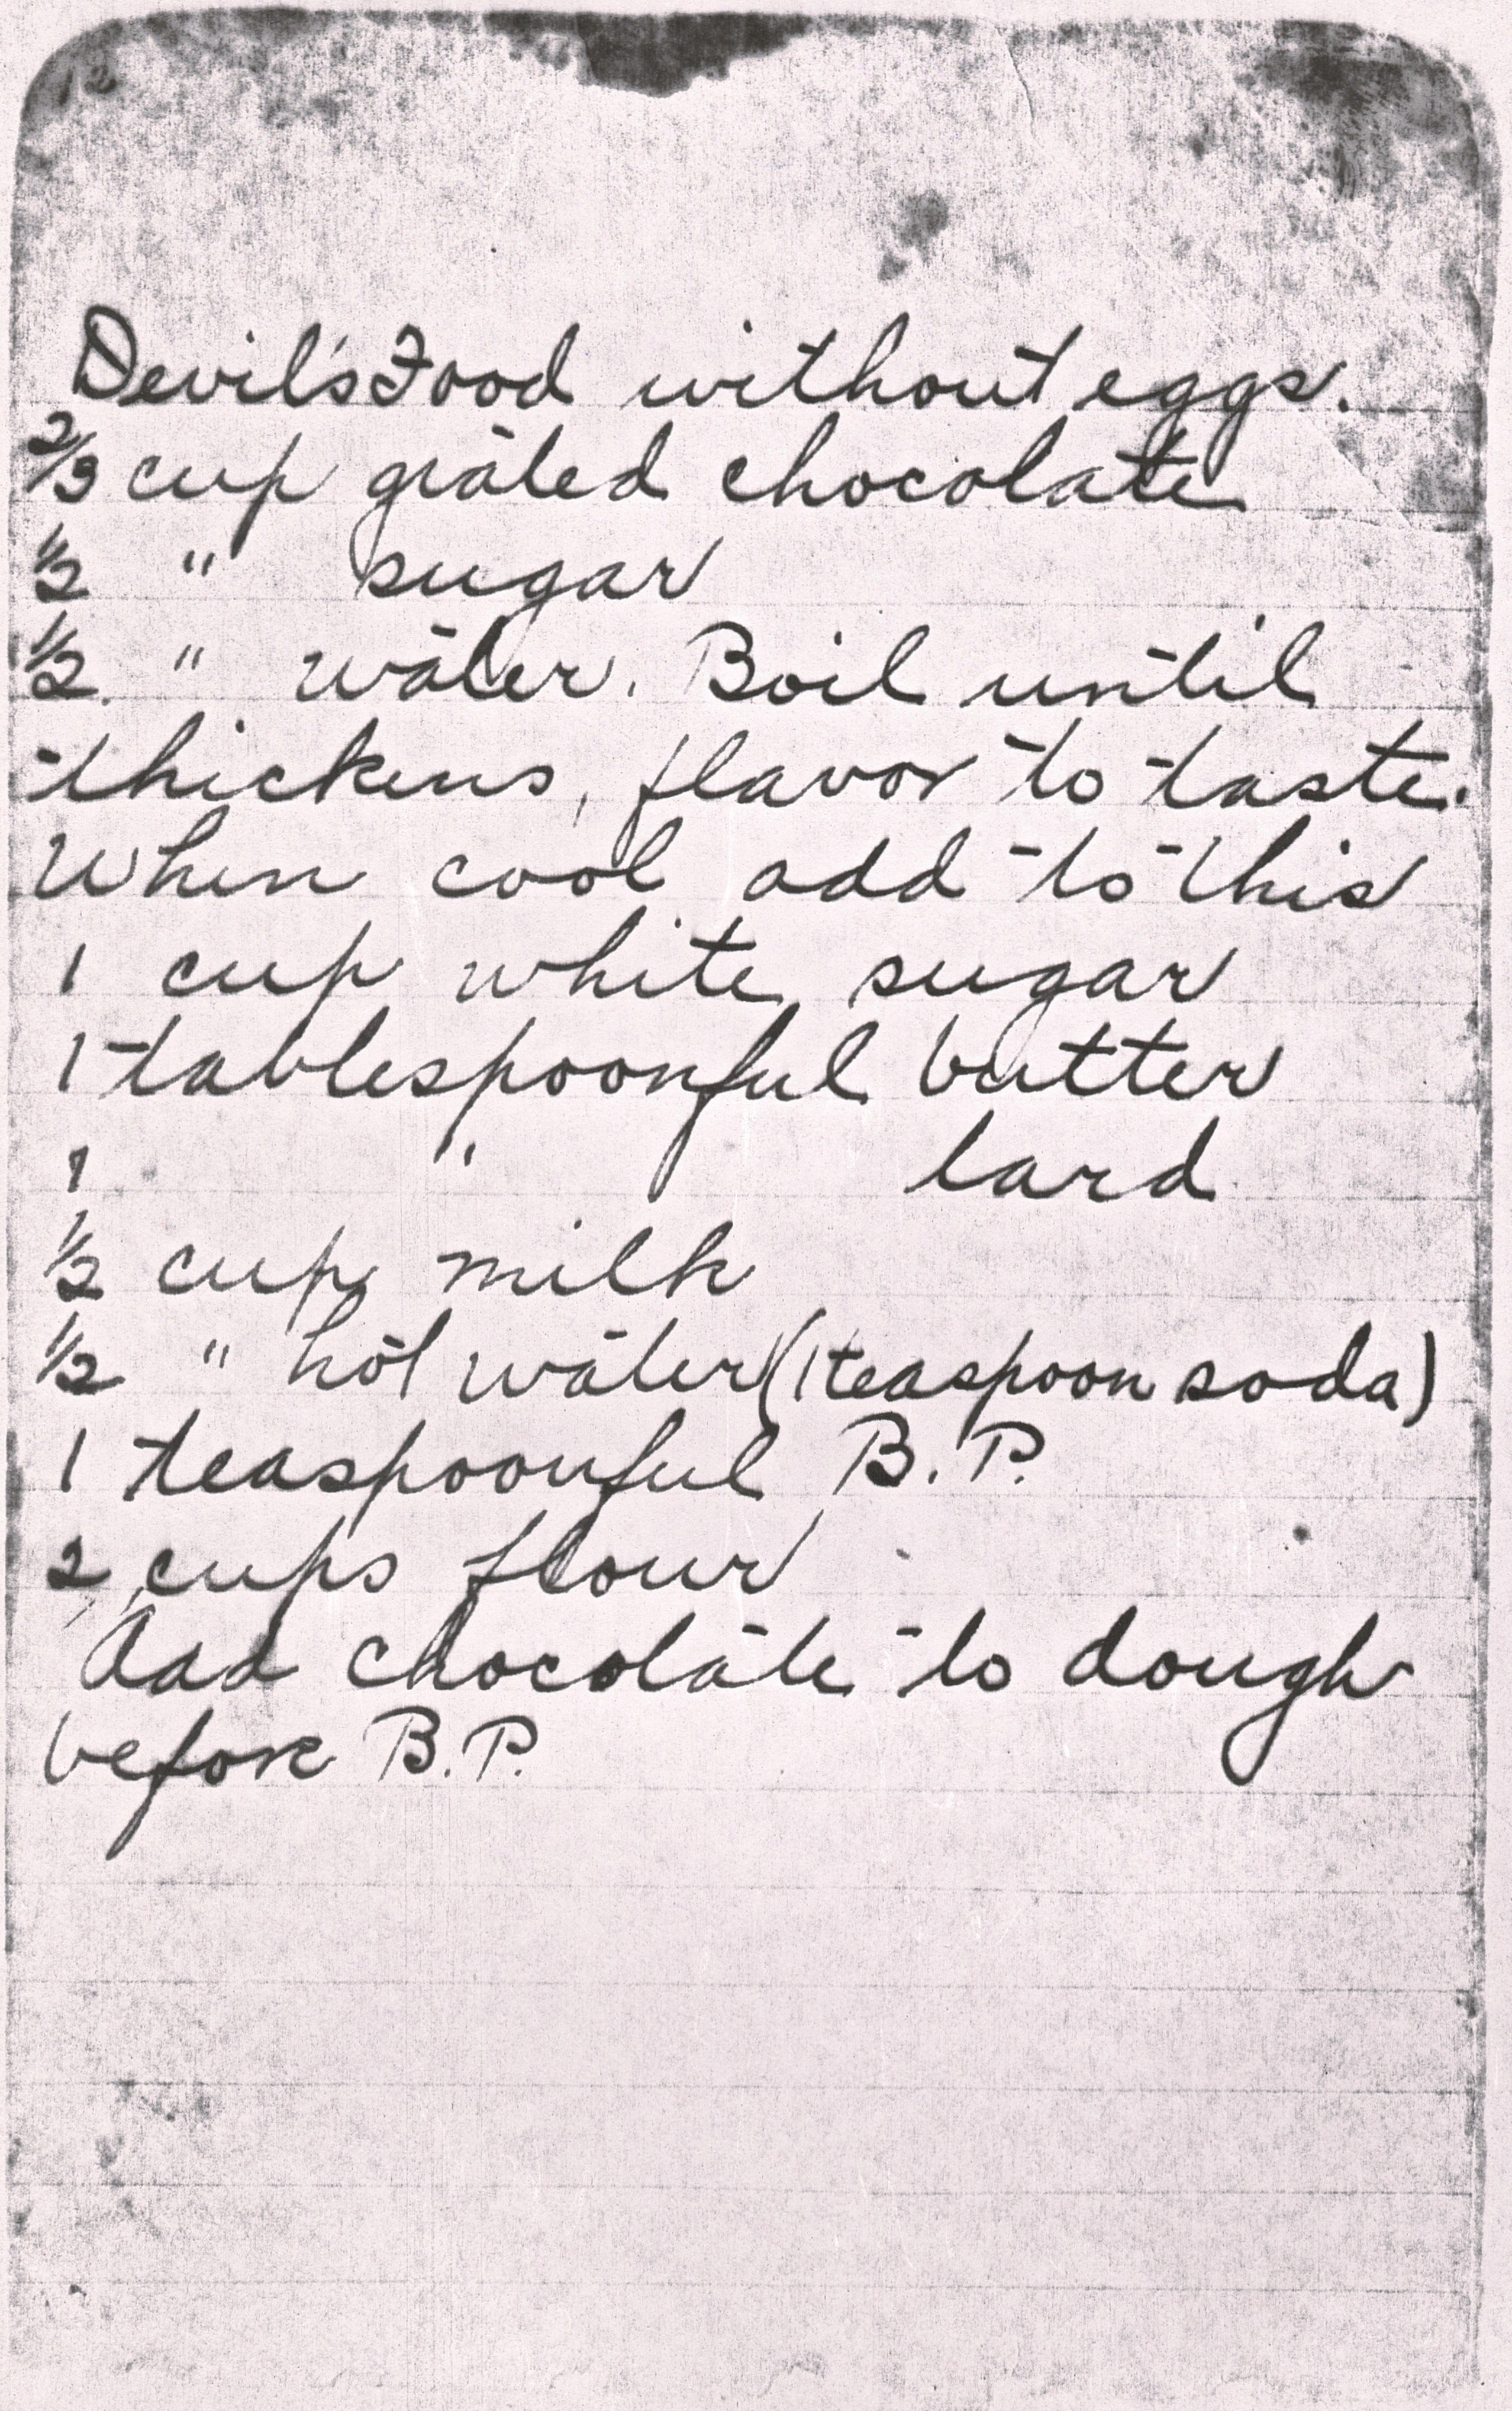 Devil's Food without eggs.
2/3 cup grated chocolate
1/2 " sugar
1/2 " water. Boil until
thickens, flavor to taste.
When cool add to this
1 cup white sugar
1 tablespoonful butter
1 " lard
1/2 cup milk
1/2 " hot water (1 teaspoon soda)
1 teaspoonful B.P.
2 cups flour
Add chocolate to dough
before B.P.